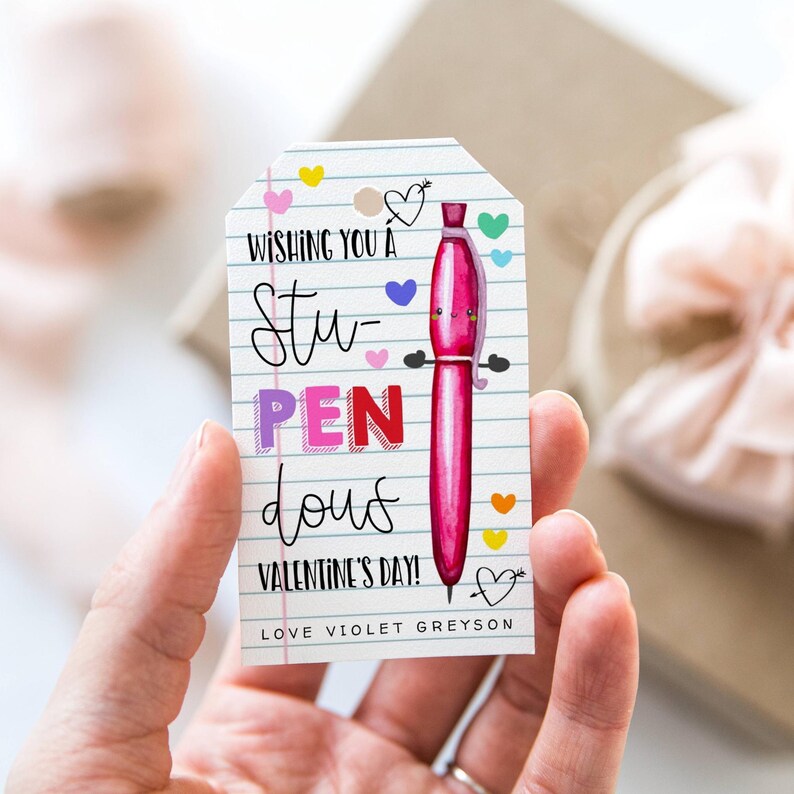 WISHING YOU A
Stu-
PEN
dous
VALENTINE'S DAY!
LOVE VIOLET GREYSON